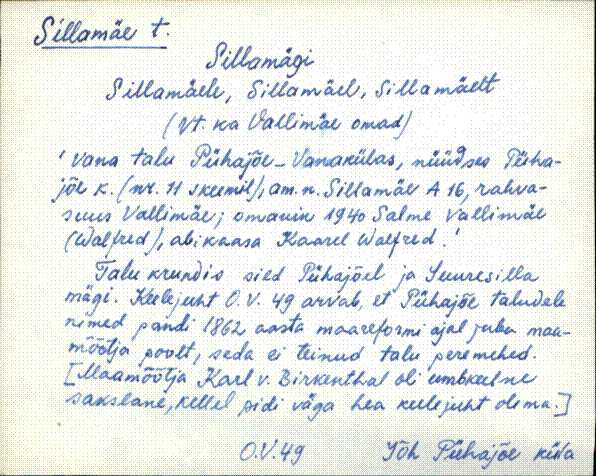 Sillamäe t.
Sillamägi
Sillamäele, Sillamäel, Sillamäelt
(Vt. ka Vallimäe omad)
'Vana talu Pühajõe-Vanakülas, nüüdses Püha-
jõe k. (nr. 11 skeemil), am. n. Sillamäe A 16, rahva-
suus Vallimäe; omanin 1940 Salme Vallimäe
(Walfred), abikaasa Kaarel Walfred.'
Talu krundis sied Pühajõel ja Suuresilla
mägi. Keelejuht O.V. 49 arvab, et Pühajõe taludele
nimed pandi 1862 aasta maareformi ajal juba maa-
mõõtja poolt, seda ei teinud talu peremehed.
[Maamõõtja Karl v. Birkenthal oli umbkeelne
sakslane, kellel pidi väga hea keelejuht olema.]
O.V. 49 Jõh Pühajõe küla